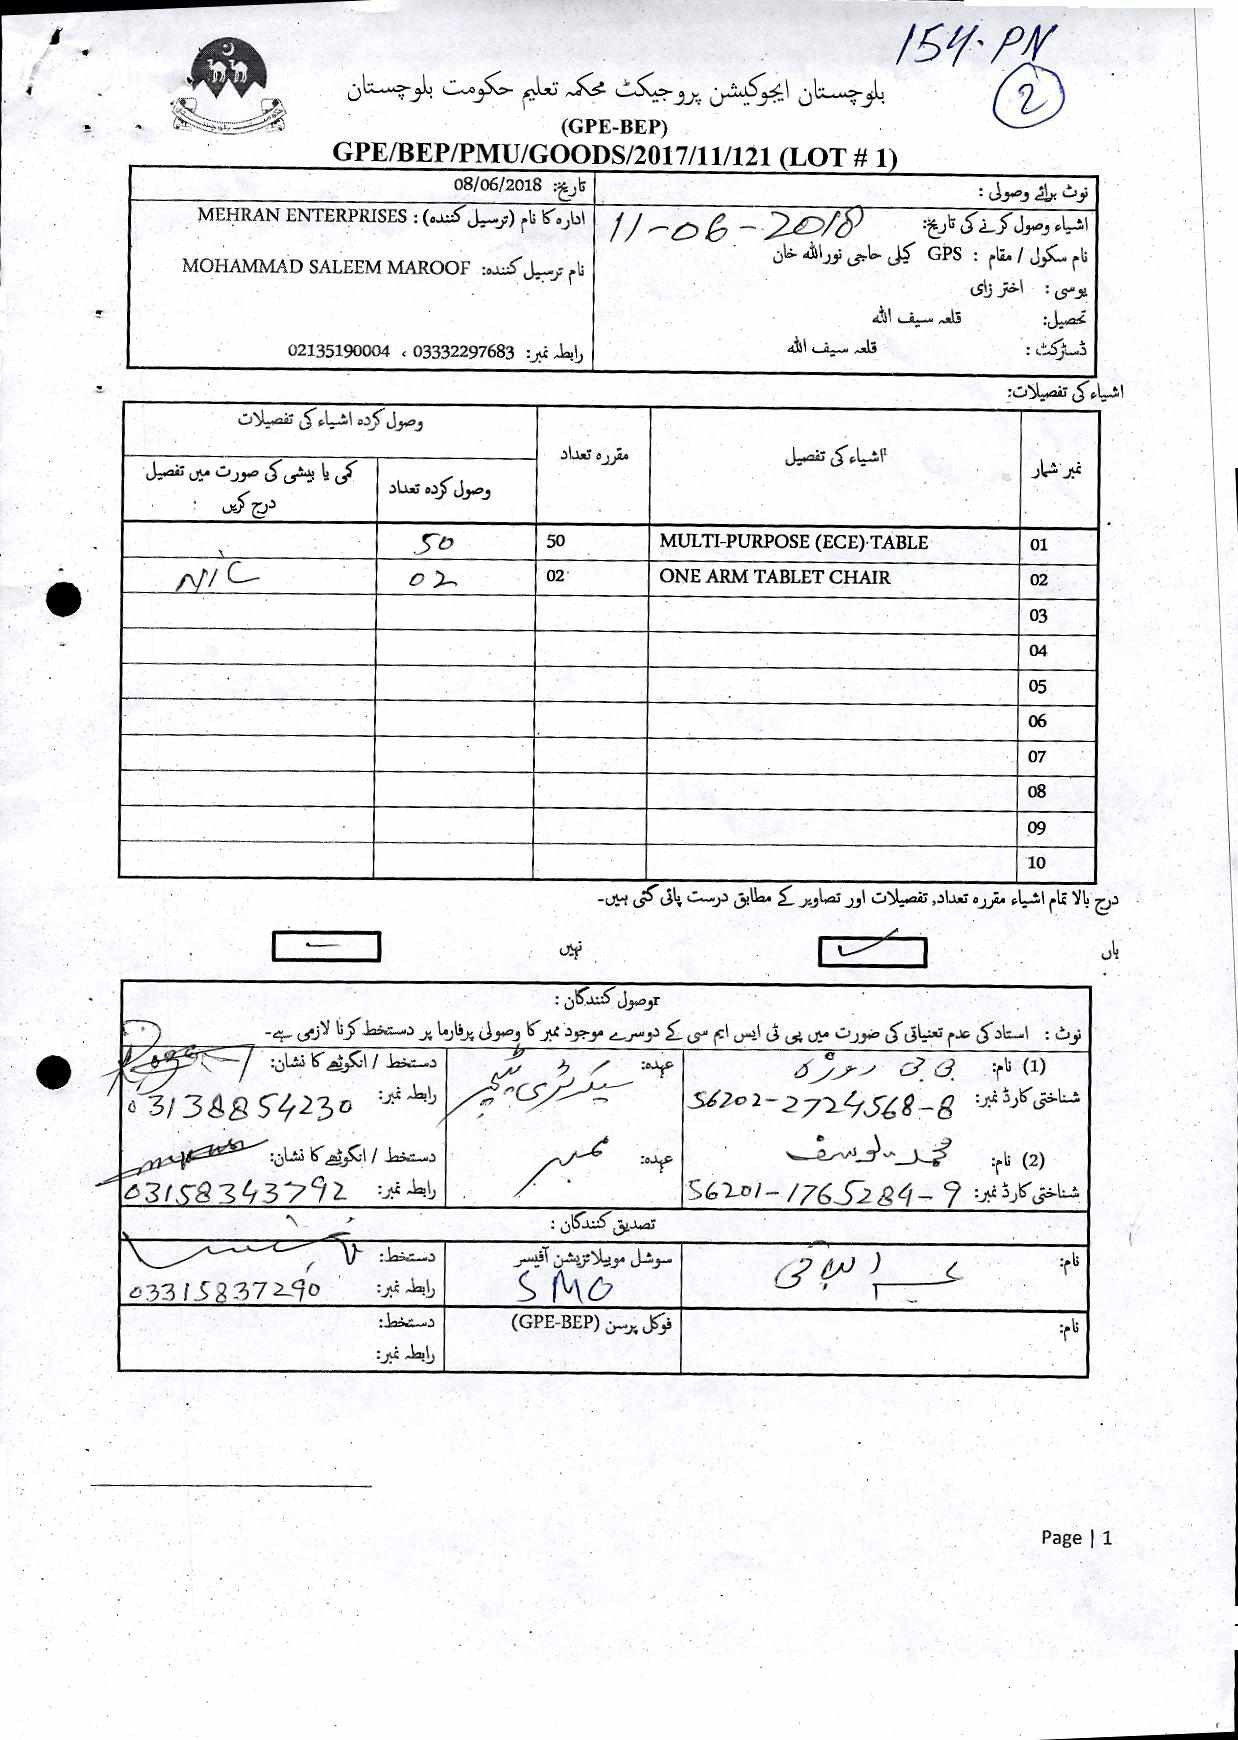 154-PN
2
بلوچستان ایجوکیشن پروجیکٹ محکمہ تعلیم حکومت بلوچستان
(GPE-BEP)
GPE/BEP/PMU/GOODS/2017/11/121 (LOT # 1)
نوٹ برائے وصولی :
تاریخ: 08/06/2018
اشیاء وصول کرنے کی تاریخ: 11-06-2018
ادارہ کا نام (ترسیل کنندہ) : MEHRAN ENTERPRISES
نام سکول / مقام : GPS کیلی حاجی نور اللہ خان
نام ترسیل کنندہ: MOHAMMAD SALEEM MAROOF
یوسی : اختر زای
تحصیل: قلعہ سیف اللہ
ڈسٹرکٹ : قلعہ سیف اللہ
رابطہ نمبر: 03332297683 ، 02135190004
اشیاء کی تفصیلات:
نمبر شمار اشیاء کی تفصیل مقررہ تعداد وصول کردہ اشیاء کی تفصیلات
وصول کردہ تعداد کمی یا بیشی کی صورت میں تفصیل درج کریں :
01 MULTI-PURPOSE (ECE) TABLE 50 50
02 ONE ARM TABLET CHAIR 02 02 NIC
03
04
05
06
07
08
09
10
درج بالا تمام اشیاء مقررہ تعداد, تفصیلات اور تصاویر کے مطابق درست پائی گئی ہیں۔
ہاں نہیں
وصول کنندگان :
نوٹ : استاد کی عدم تعیناتی کی صورت میں پی ٹی ایس ایم سی کے دوسرے موجود ممبر کا وصولی پرفارما پر دستخط کرنا لازمی ہے۔
(1) نام: بی بی روزہ عہدہ: سیکرٹری ٹیچر دستخط / انگوٹھے کا نشان:
شناختی کارڈ نمبر: 56202-2724568-8 رابطہ نمبر: 03138854230
(2) نام: محمد یوسف عہدہ: ممبر دستخط / انگوٹھے کا نشان:
شناختی کارڈ نمبر: 56201-1765284-9 رابطہ نمبر: 03158343792
تصدیق کنندگان :
نام: سوشل موبیلائزیشن آفیسر دستخط:
SMO رابطہ نمبر: 03315837290
نام: فوکل پرسن (GPE-BEP) دستخط:
رابطہ نمبر:
Page | 1